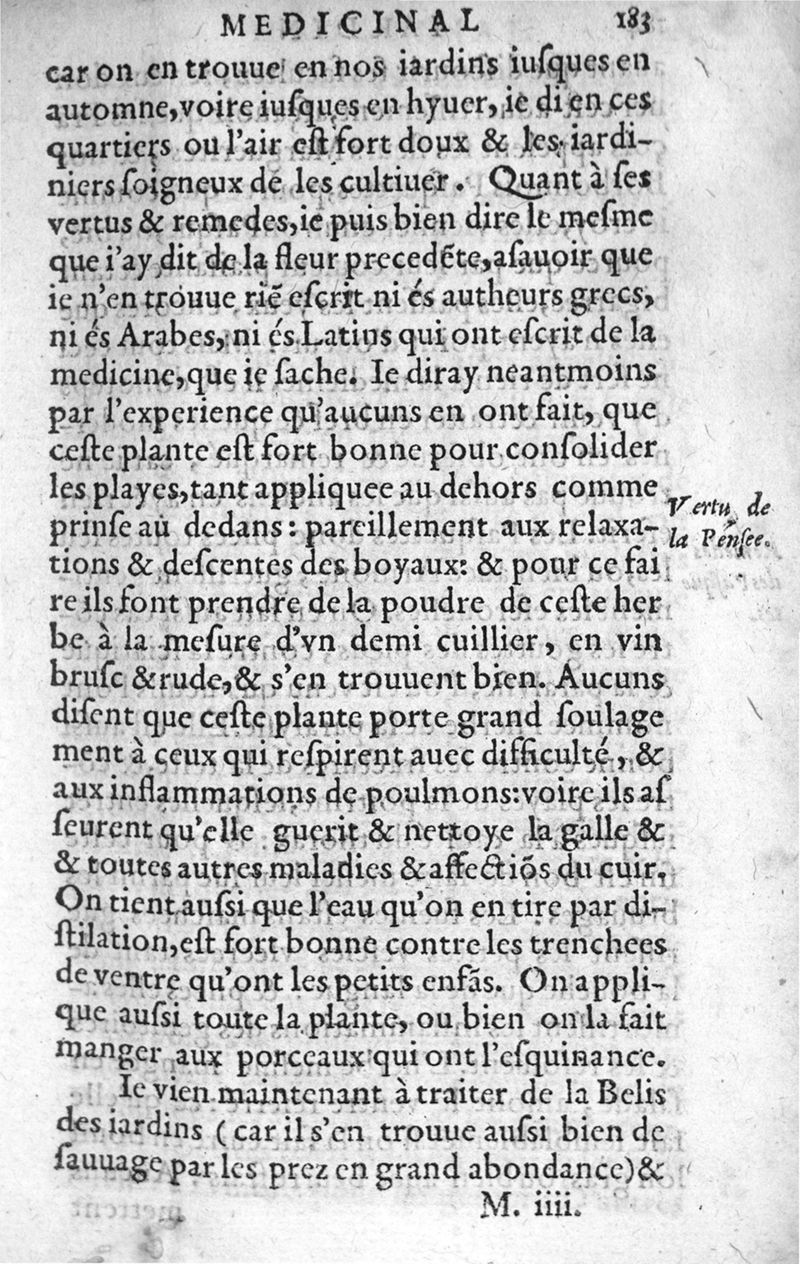 MEDICINAL 183
car on en trouue en nos iardins iuſques en
automne, voire iuſques en hyuer, ie di en ces
quartiers ou l'air eſt fort doux & les iardi-
niers ſoigneux de les cultiuer. Quant à ſes
vertus & remedes, ie puis bien dire le meſme
que i'ay dit de la fleur precedẽte, aſauoir que
ie n'en trouue riẽ eſcrit ni és autheurs grecs,
ni és Arabes, ni és Latins qui ont eſcrit de la
medicine, que ie ſache. Ie diray neantmoins
par l'experience qu'aucuns en ont fait, que
ceſte plante eſt fort bonne pour conſolider
les playes, tant appliquee au dehors comme
Vertu de
prinſe au dedans: pareillement aux relaxa-
la Pensee.
tions & deſcentes des boyaux: & pour ce fai
re ils font prendre de la poudre de ceſte her
be à la meſure d'vn demi cuillier, en vin
bruſc & rude, & s'en trouuent bien. Aucuns
diſent que ceſte plante porte grand ſoulage
ment à ceux qui reſpirent auec difficulté, &
aux inflammations de poulmons: voire ils aſ
ſeurent qu'elle guerit & nettoye la galle &
& toutes autres maladies & affectiõs du cuir.
On tient auſsi que l'eau qu'on en tire par di-
ſtilation, eſt fort bonne contre les trenchees
de ventre qu'ont les petits enfãs. On appli-
que auſsi toute la plante, ou bien on la fait
manger aux porceaux qui ont l'eſquinance.
Ie vien maintenant à traiter de la Belis
des iardins (car il s'en trouue auſsi bien de
ſauuage par les prez en grand abondance) &
M. iiii.